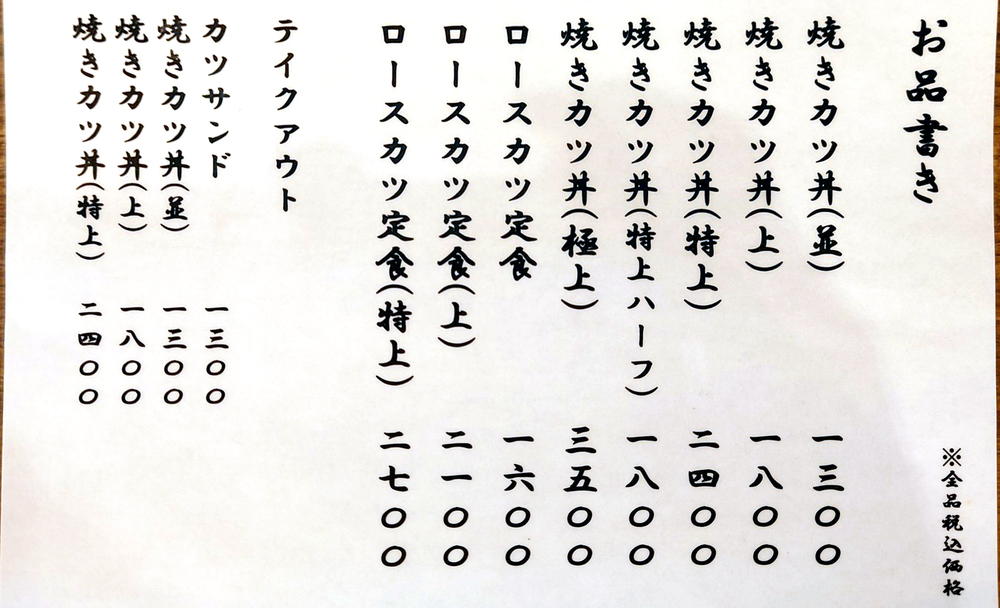 お品書き
※全品税込価格
焼きカツ丼(並) 一三〇〇
焼きカツ丼(上) 一八〇〇
焼きカツ丼(特上) 二四〇〇
焼きカツ丼(特上ハーフ) 一八〇〇
焼きカツ丼(極上) 三五〇〇
ロースカツ定食 一六〇〇
ロースカツ定食(上) 二一〇〇
ロースカツ定食(特上) 二七〇〇
テイクアウト
カツサンド 一三〇〇
焼きカツ丼(並) 一三〇〇
焼きカツ丼(上) 一八〇〇
焼きカツ丼(特上) 二四〇〇